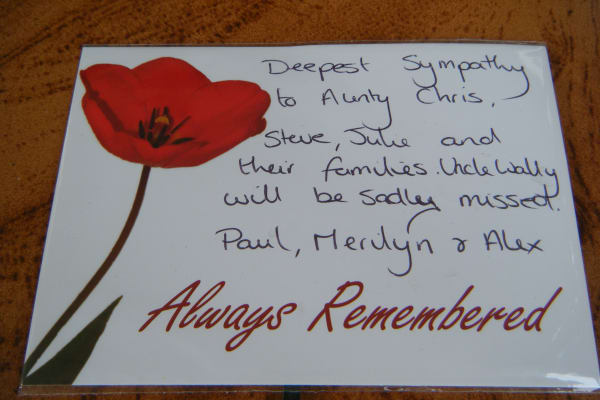 Deepest Sympathy
to Aunty Chris,
Steve, Julie and
their families. Uncle Wally
will be sadley missed.
Paul, Merilyn & Alex
Always Remembered